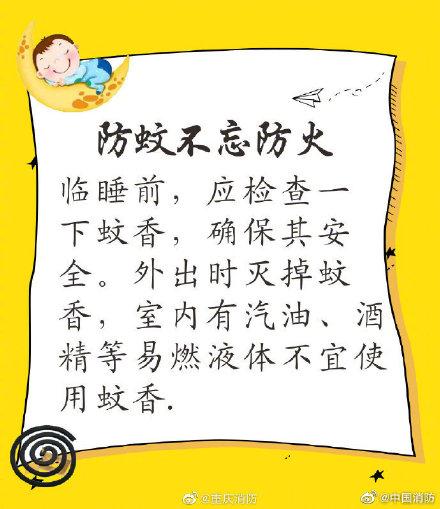 防蚊不忘防火
临睡前，应检查一
下蚊香，确保其安
全。外出时灭掉蚊
香，室内有汽油、酒
精等易燃液体不宜使
用蚊香.
@重庆消防
@中国消防